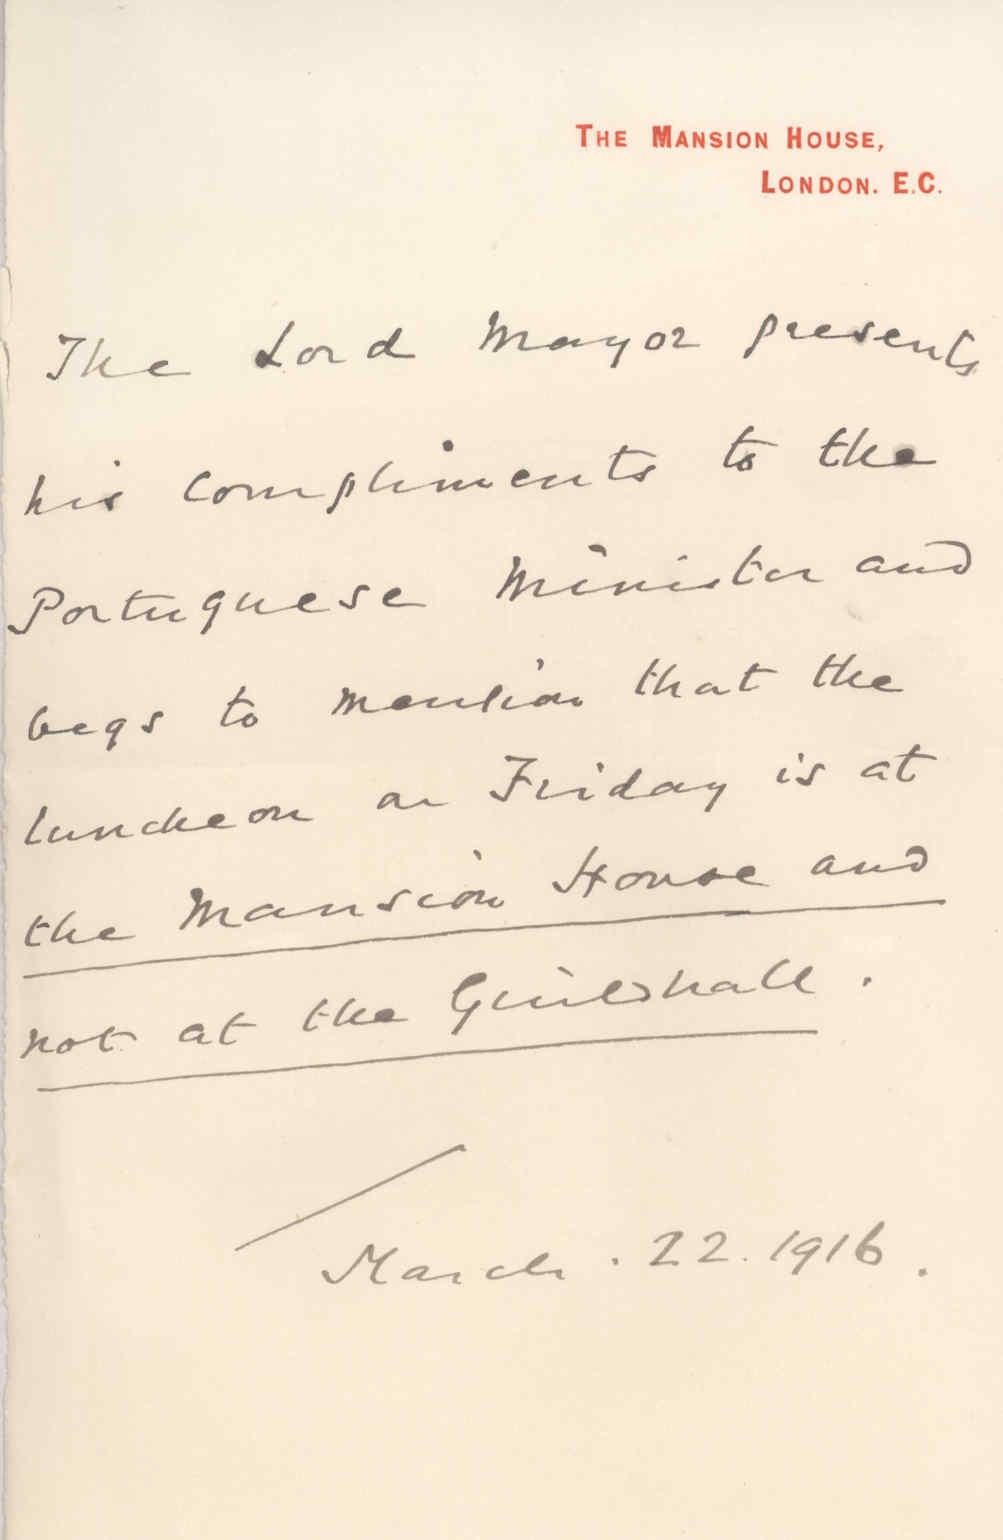 THE MANSION HOUSE,
LONDON. E.C.
The Lord Mayor presents
his compliments to the
Portuguese Minister and
begs to mention that the
luncheon on Friday is at
the Mansion House and
not at the Guildhall.
March. 22. 1916.